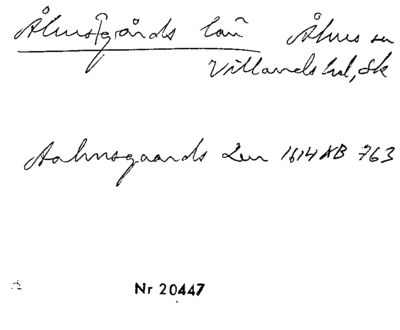 Åhusgårds län Åhus sn
Villands hd, Sk
Aahusgaards Len 1614 KB 763
Nr 20447